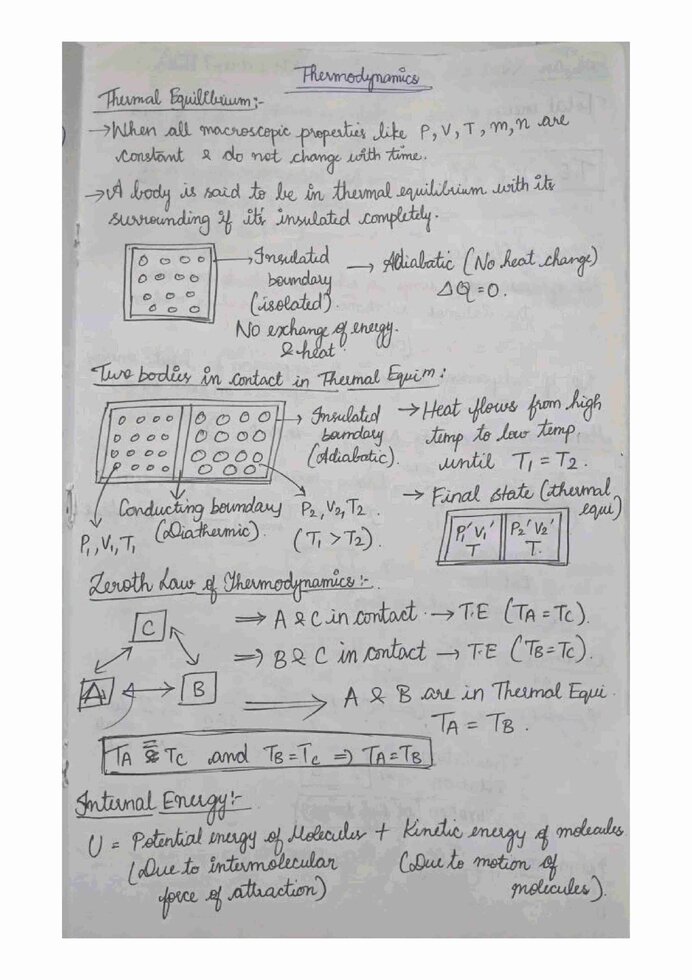 Thermodynamics
Thermal Equilibrium:-
→ When all macroscopic properties like P, V, T, m, n are
constant & do not change with time.
→ A body is said to be in thermal equilibrium with its
surrounding if its insulated completely.
→ Insulated
boundary
(isolated)
No exchange of energy.
& heat.
→ Adiabatic (No heat change)
ΔQ = 0.
Two bodies in contact in Thermal Equim:
→ Insulated
boundary
(Adiabatic).
→ Heat flows from high
temp to low temp,
until T₁ = T₂.
Conducting boundary
(Diathermic).
P₁, V₁, T₁
P₂, V₂, T₂.
(T₁ > T₂).
→ Final state (thermal
equi)
P₁' V₁'
T
P₂' V₂'
T.
Zeroth Law of Thermodynamics:-
C
A
B
⇒ A & C in contact → T.E (TA = TC).
⇒ B & C in contact → T.E (TB = TC).
⇒ A & B are in Thermal Equi.
TA = TB.
TA = TC and TB = TC ⇒ TA = TB
Internal Energy:-
U = Potential energy of Molecules + Kinetic energy of molecules.
(Due to intermolecular
force of attraction)
(Due to motion of
molecules).